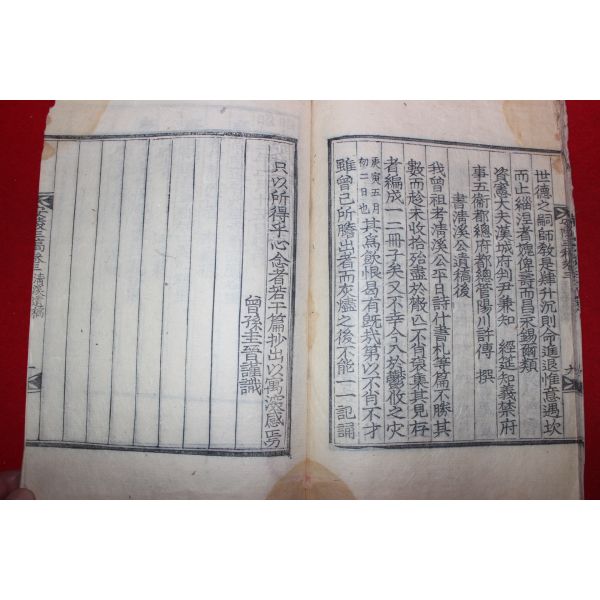 世德之嗣師教是肆升沉則命進退惟意遇坎
而止緇涅者愧俾壽而昌永錫爾類
資憲大夫漢城府判尹兼知 經筵知義禁府
事五衛都總府都總管陽川許傳 撰
書淸溪公遺稿後
我曾祖考淸溪公平日詩什書札等篇不勝其
數而趁未收拾殆盡於散亾不肖裒集其見存
者編成一二冊子矣又不幸今入於鬱攸之灾
庚寅五月
初二日也
其爲飮恨曷有旣哉第以不肖不才
雖曾已所謄出者而灰燼之後不能一一記誦
只以所得乎心念者若干篇抄出以寓濅感焉
曾孫圭晉謹識
淸溪遺稿